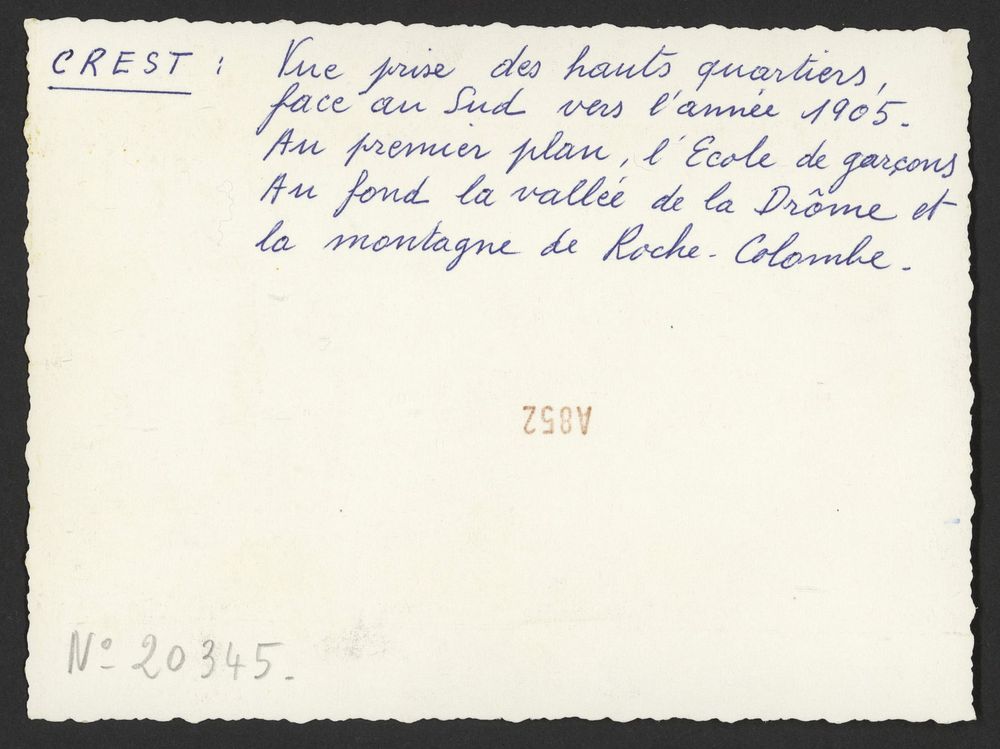 CREST : Vue prise des hauts quartiers,
face au Sud vers l'année 1905.
Au premier plan, l'Ecole de garçons
Au fond la vallée de la Drôme et
la montagne de Roche-Colombe.
A852
Nº 20345.